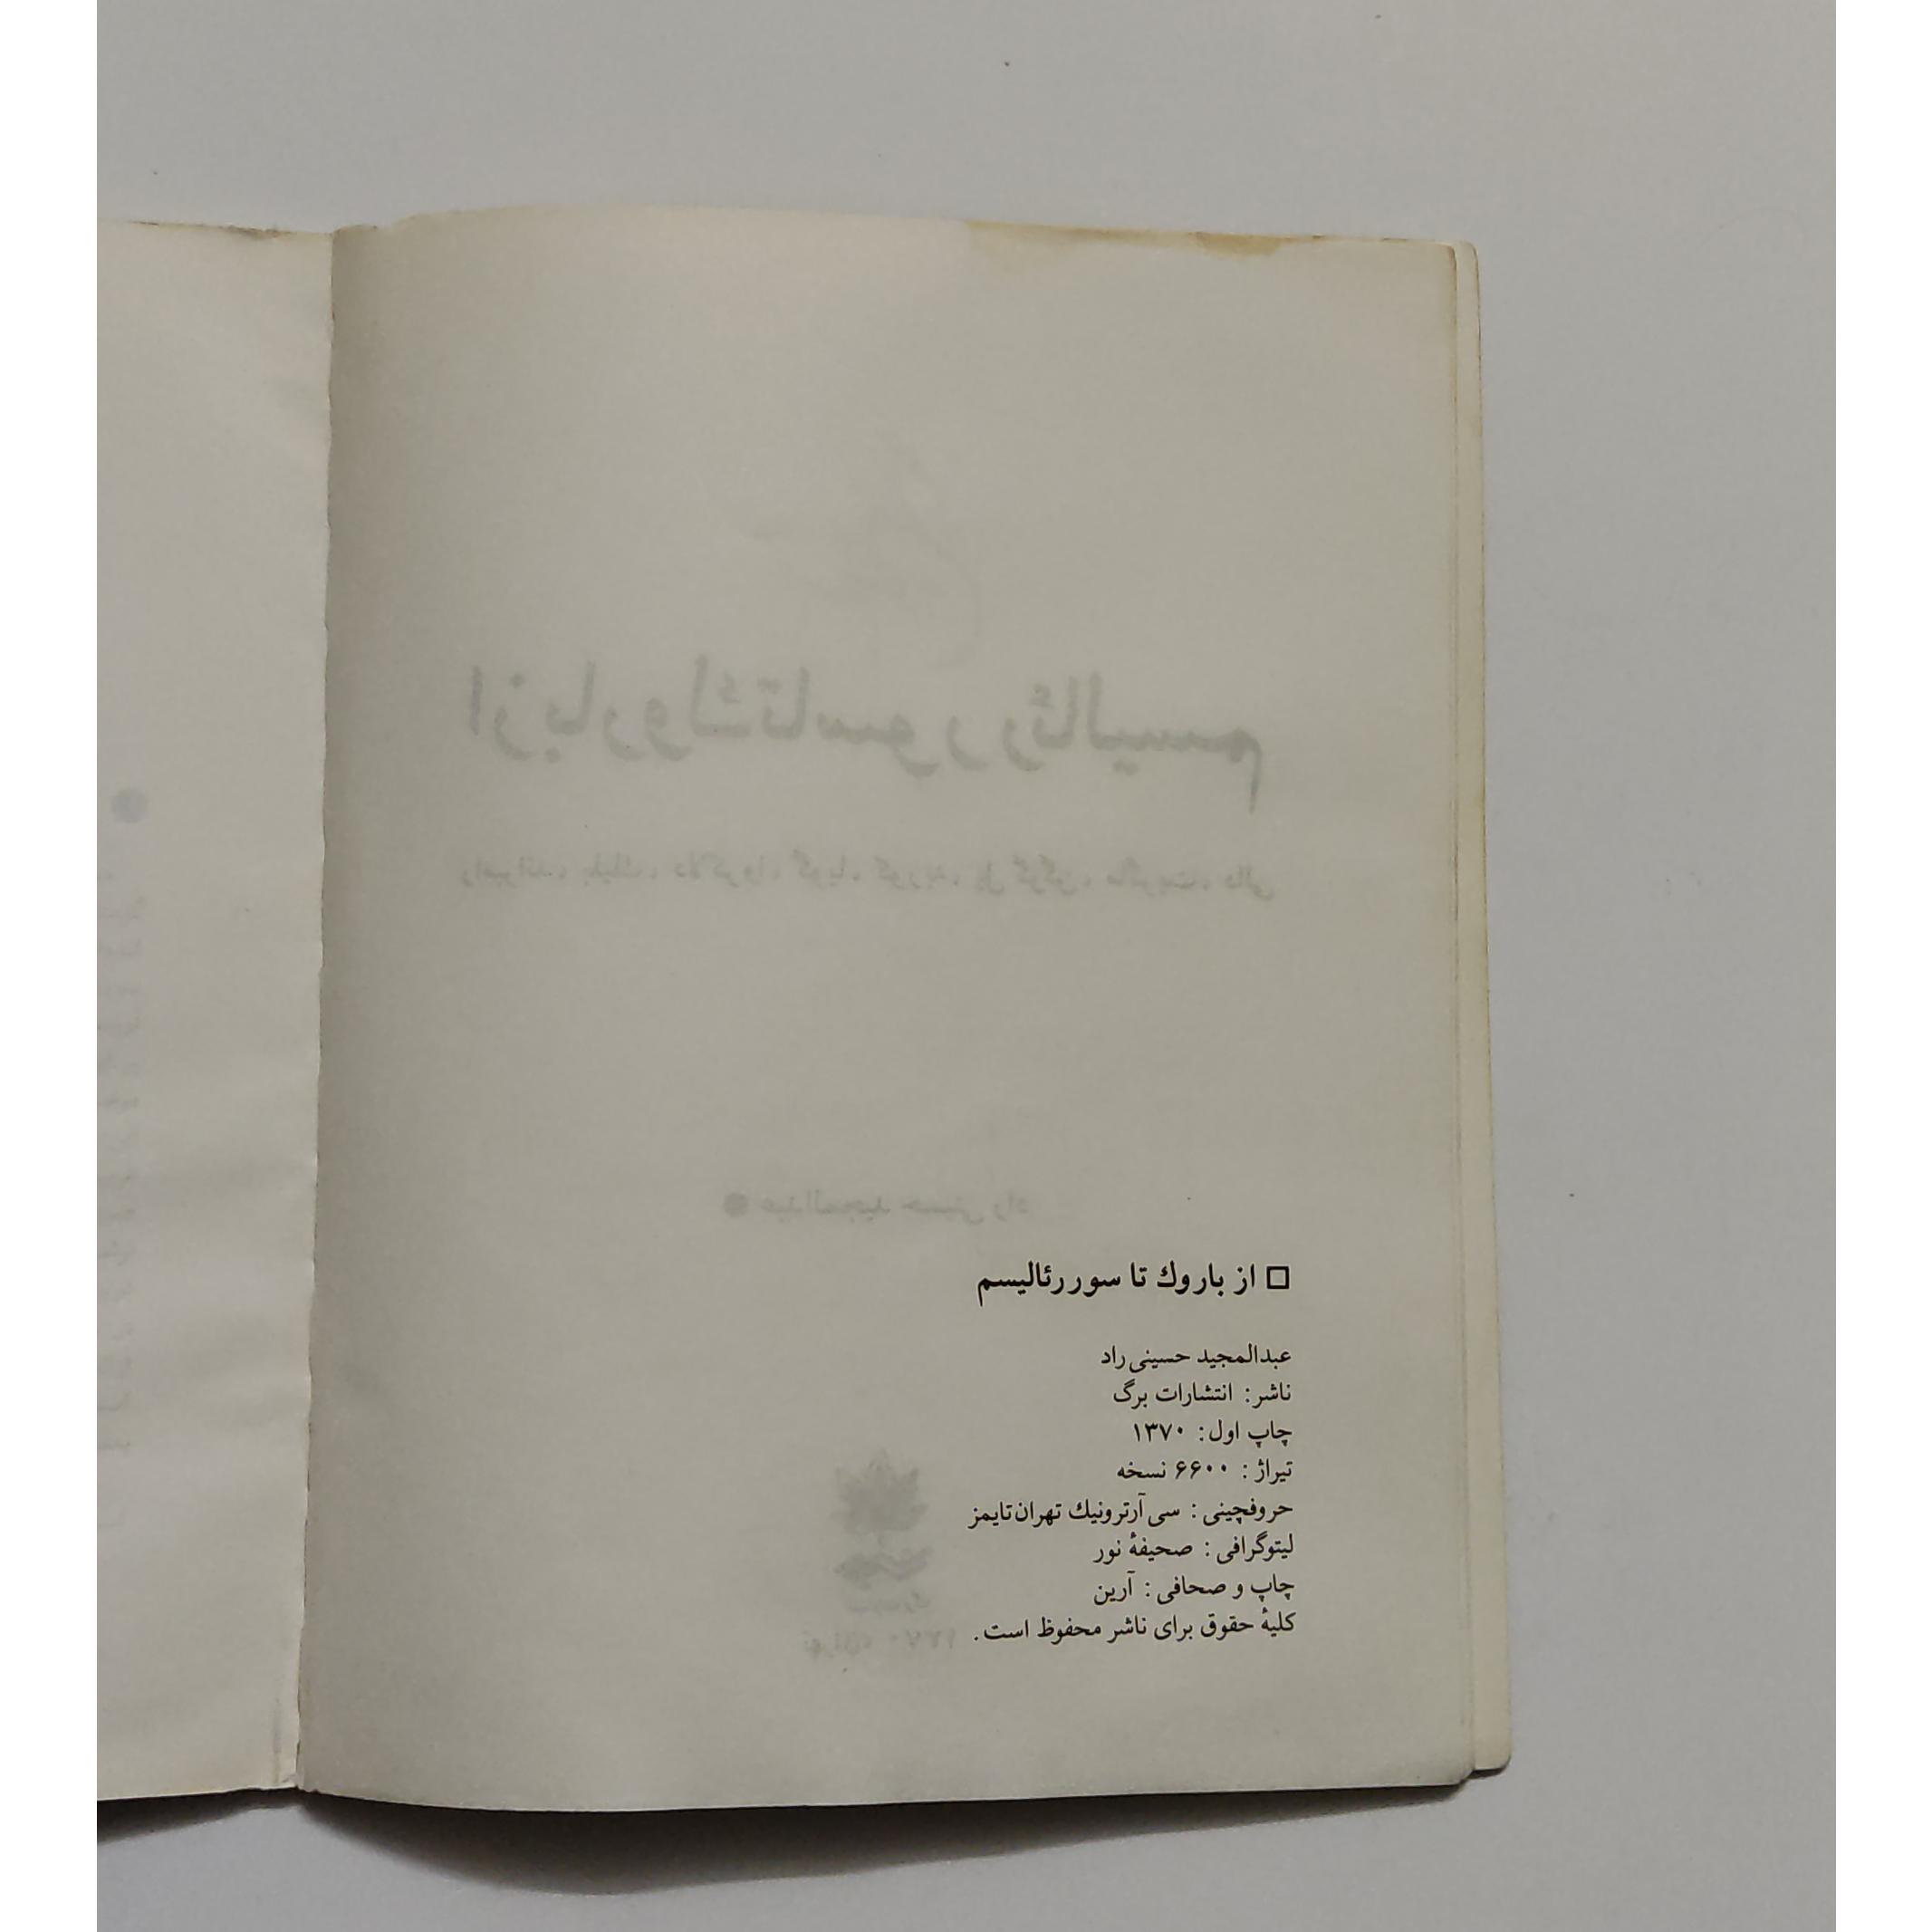 □ از باروك تا سوررئالیسم
عبدالمجید حسینی‌راد
ناشر: انتشارات برگ
چاپ اول: ۱۳۷۰
تیراژ: ۶۶۰۰ نسخه
حروفچینی: سی‌آرترونیك تهران‌تایمز
لیتوگرافی: صحیفهٔ نور
چاپ و صحافی: آرین
کلیهٔ حقوق برای ناشر محفوظ است.